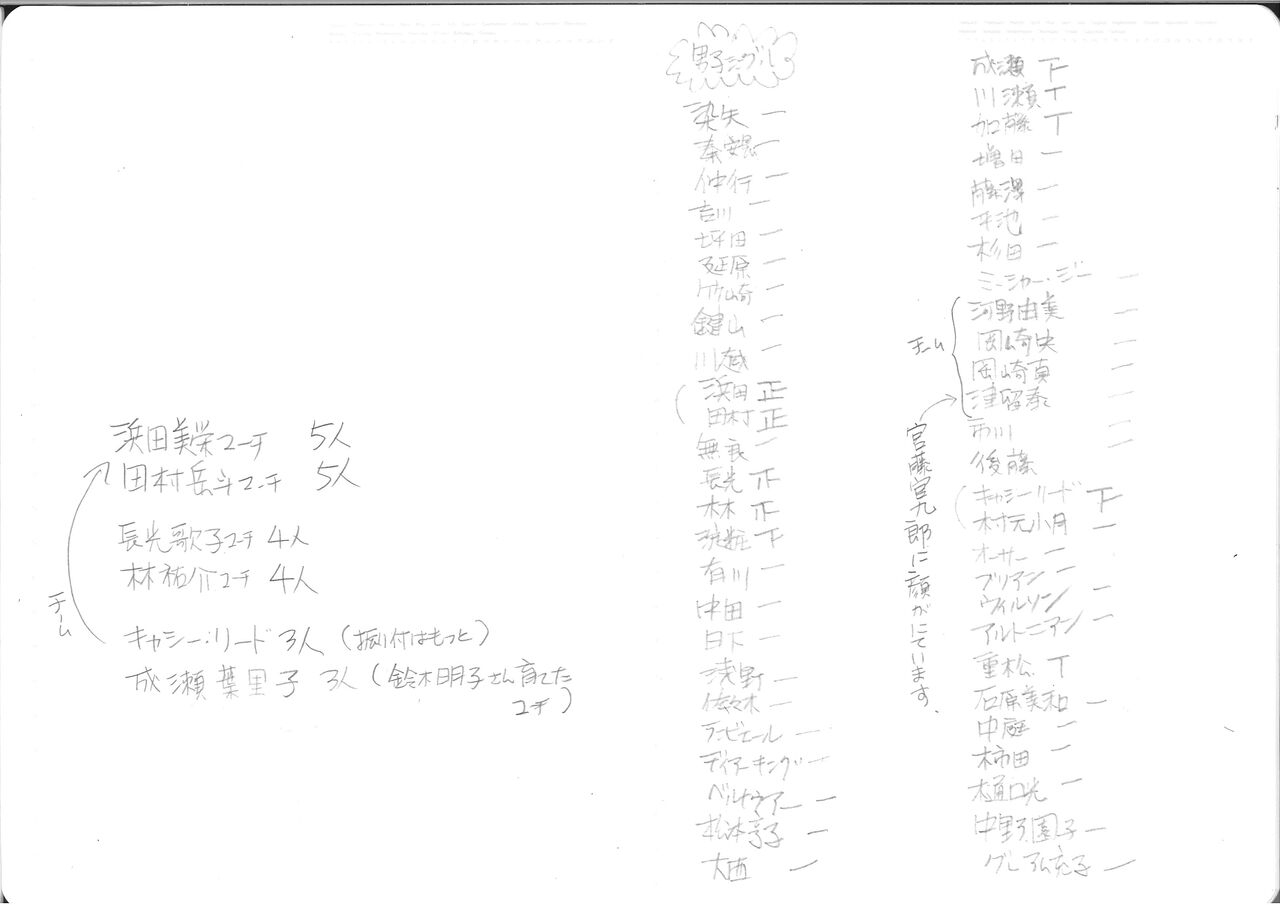 浜田美栄コーチ 5人
田村岳斗コーチ 5人
長光歌子コーチ 4人
林祐介コーチ 4人
チーム
キャシー・リード 3人 (振り付はもっと)
成瀬葉里子 3人 (鈴木明子さん育てた
コーチ)
男子シングル
染矢 一
秦安曇 一
仲行 一
吉川 一
坪田 一
延原 一
竹崎 一
鍵山 一
川越 一
浜田 正
田村 正
無良 一
長光
林
下
有川 一
中田 一
日下 一
浅野 一
佐々木 一
ラ・ピエール 一
ディアーキング 一
ベルナウアー 一
松本享子 一
大西 一
成瀬 下
川瀬 T
加藤 T
増田 一
藤澤 一
平池 一
杉田 一
ミーシャー・ジー 一
チーム
河野由美 一
岡崎央 一
岡崎真 一
津留泰 一
宮藤官九郎に顔がにています。
市川 一
後藤 一
キャシーリード 下
村元小月 一
オーサー 一
ブリアン 一
ウィルソン 一
アルトニアン 一
重松 T
石原美和 一
中庭 一
柿田 一
樋口光 一
中野園子 一
グレアム充子 一